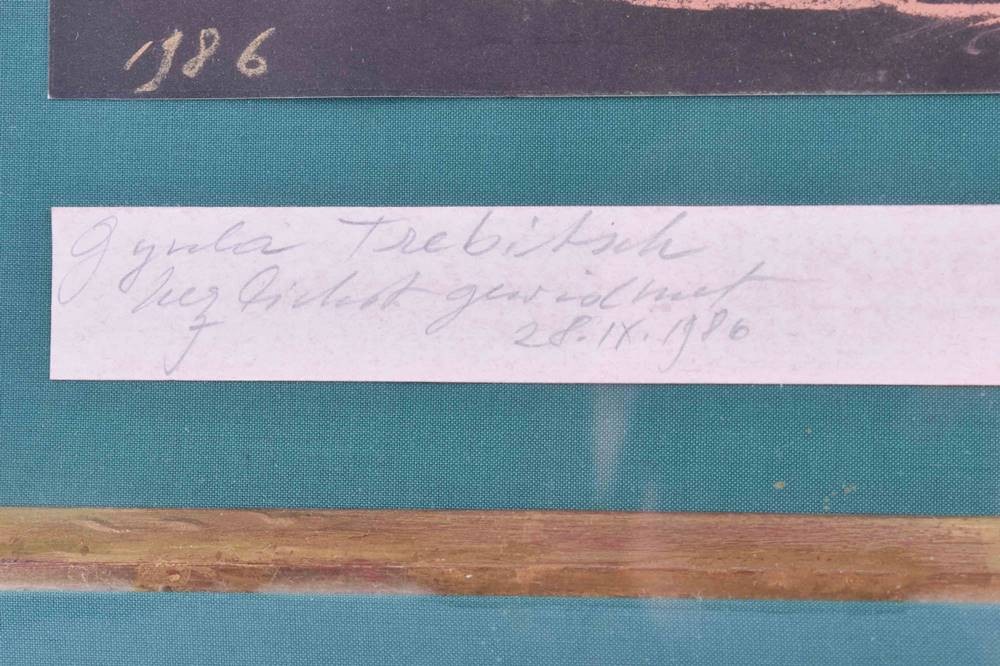 1986
Gyula Trebitsch
herzlichst gewidmet
28.IX.1986